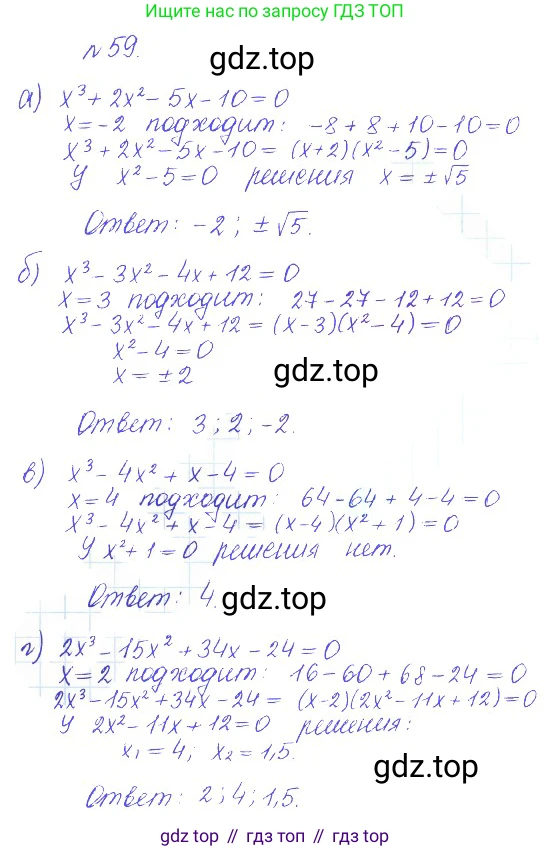 Ищите нас по запросу в поиске ГДЗ ТОП
№ 59.
gdz.top
а) x³ + 2x² - 5x - 10 = 0
x = -2 подходит: -8 + 8 + 10 - 10 = 0
x³ + 2x² - 5x - 10 = (x+2)(x² - 5) = 0
У x² - 5 = 0 решения x = ± √5
Ответ: -2; ± √5.
б) x³ - 3x² - 4x + 12 = 0
x = 3 подходит: 27 - 27 - 12 + 12 = 0
x³ - 3x² - 4x + 12 = (x-3)(x² - 4) = 0
x² - 4 = 0
x = ± 2
gdz.top
Ответ: 3; 2; -2.
в) x³ - 4x² + x - 4 = 0
x = 4 подходит: 64 - 64 + 4 - 4 = 0
x³ - 4x² + x - 4 = (x-4)(x² + 1) = 0
У x² + 1 = 0 решения нет.
Ответ: 4.
gdz.top
г) 2x³ - 15x² + 34x - 24 = 0
x = 2 подходит: 16 - 60 + 68 - 24 = 0
2x³ - 15x² + 34x - 24 = (x-2)(2x² - 11x + 12) = 0
У 2x² - 11x + 12 = 0 решения:
x₁ = 4; x₂ = 1,5.
gdz.top
Ответ: 2; 4; 1,5.
gdz top // гдз топ // гдз top